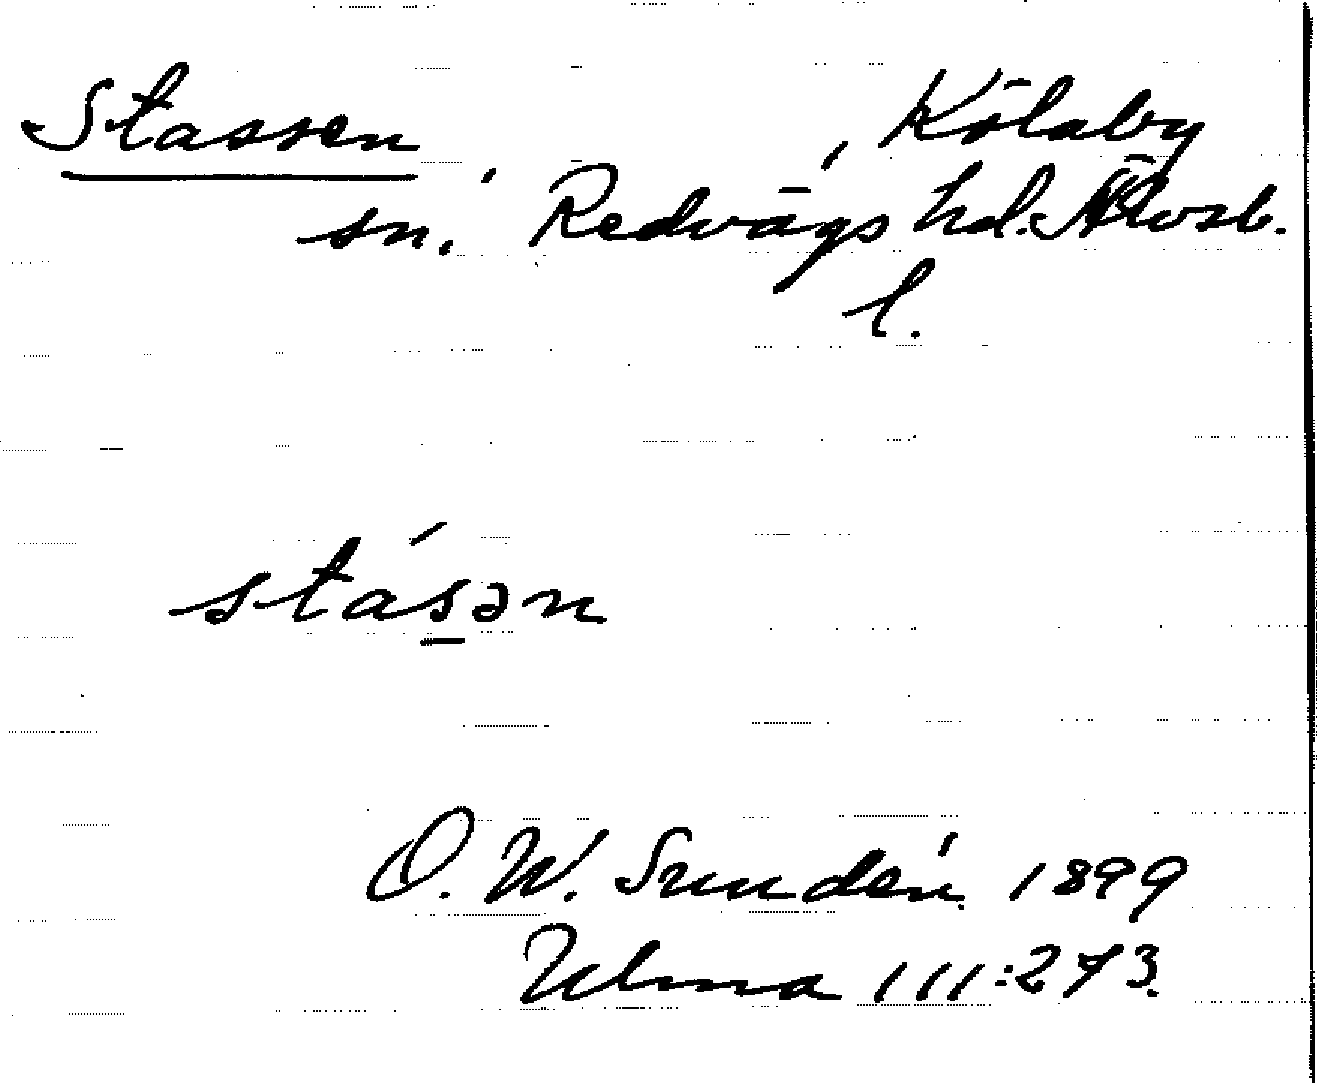 Stassen, Kölaby
sn. Redvägs hd. Älvsb.
l.
stásən
O. W. Sundén. 1899
Ulma 111:273.